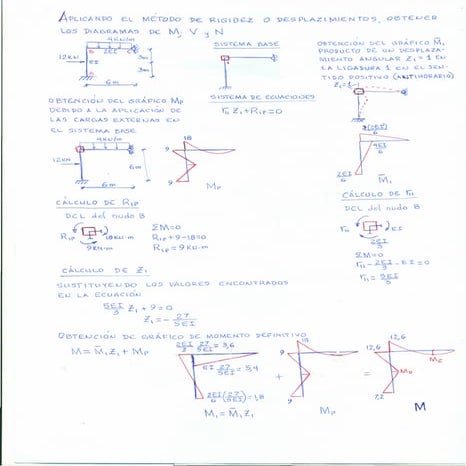 APLICANDO EL MÉTODO DE RIGIDEZ O DESPLAZIMIENTOS, OBTENER
LOS DIAGRAMAS DE M, V y N
4KN/m
B 2EI C
12KN
EI
A
3m
3m
6m
SISTEMA BASE
OBTENCIÓN DEL GRÁFICO M̄₁
PRODUCTO DE UN DESPLAZA-
MIENTO ANGULAR Z₁=1 EN
LA LIGADURA 1 EN EL SEN-
TIDO POSITIVO (ANTIHORARIO)
Z₁=1
OBTENCIÓN DEL GRÁFICO Mp
DEBIDO A LA APLICACIÓN DE
LAS CARGAS EXTERNAS EN
EL SISTEMA BASE
SISTEMA DE ECUACIONES
r₁₁Z₁+R₁p=0
4KN/m
12KN
6m
6m
18
9
9
Mp
4EI
6
2EI
6
M̄₁
CÁLCULO DE R₁p
DCL del nudo B
R₁p
18KN·m
9KN·m
ΣM=0
R₁p+9-18=0
R₁p=9KN·m
CÁLCULO DE r₁₁
DCL DEL NUDO B
r₁₁
EI
2EI
3
ΣM=0
r₁₁-2EI/3-EI=0
r₁₁=5EI/3
CÁLCULO DE Z₁
SUSTITUYENDO LOS VALORES ENCONTRADOS
EN LA ECUACIÓN
5EI/3 Z₁+9=0
Z₁=-27/5EI
OBTENCIÓN DE GRÁFICO DE MOMENTO DEFINITIVO
M=M̄₁Z₁+Mp
2EI/3 27/5EI=3,6
EI 27/5EI=5,4
2EI/6(27/5EI)=1,8
M₁=M̄₁Z₁
+
18
9
9
Mp
=
12,6
12,6
7,2
M